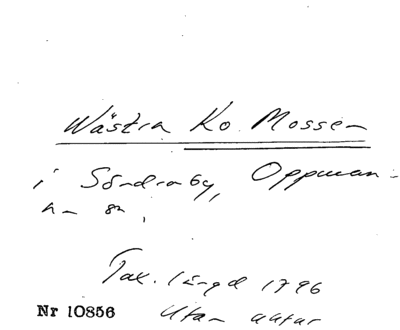 Wästra Ko Mossen
i Söndraby, Oppman-
na sn,
Tax. längd 1796
Nr 10856 Utan aktnr